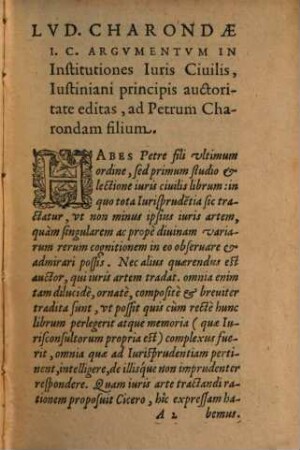 LVD. CHARONDÆ
I. C. ARGVMENTVM IN
Institutiones Iuris Ciuilis,
Iustiniani principis auctori-
tate editas, ad Petrum Cha-
rondam filium.
HABES Petre fili vltimum
ordine, sed primum studio &
lectione iuris ciuilis librum: in
quo tota Iurisprudẽtia sic tra-
ctatur, vt non minus ipsius iuris artem,
quàm singularem ac propè diuinam varia-
rum rerum cognitionem in eo obseruare &
admirari possis. Nec alius querendus est
auctor, qui iuris artem tradat. omnia enim
tam dilucidè, ornatè, compositè & breuiter
tradita sunt, vt possit quis cum rectè hunc
librum perlegerit atque memoria (quæ Iu-
risconsultorum propria est) complexus fue-
rit, omnia quæ ad Iurisprudentiam perti-
nent, intelligere, de illisque non imprudenter
respondere. Quam iuris arte tractandi ra-
tionem proposuit Cicero, hîc expressam ha-
A 2 bemus.